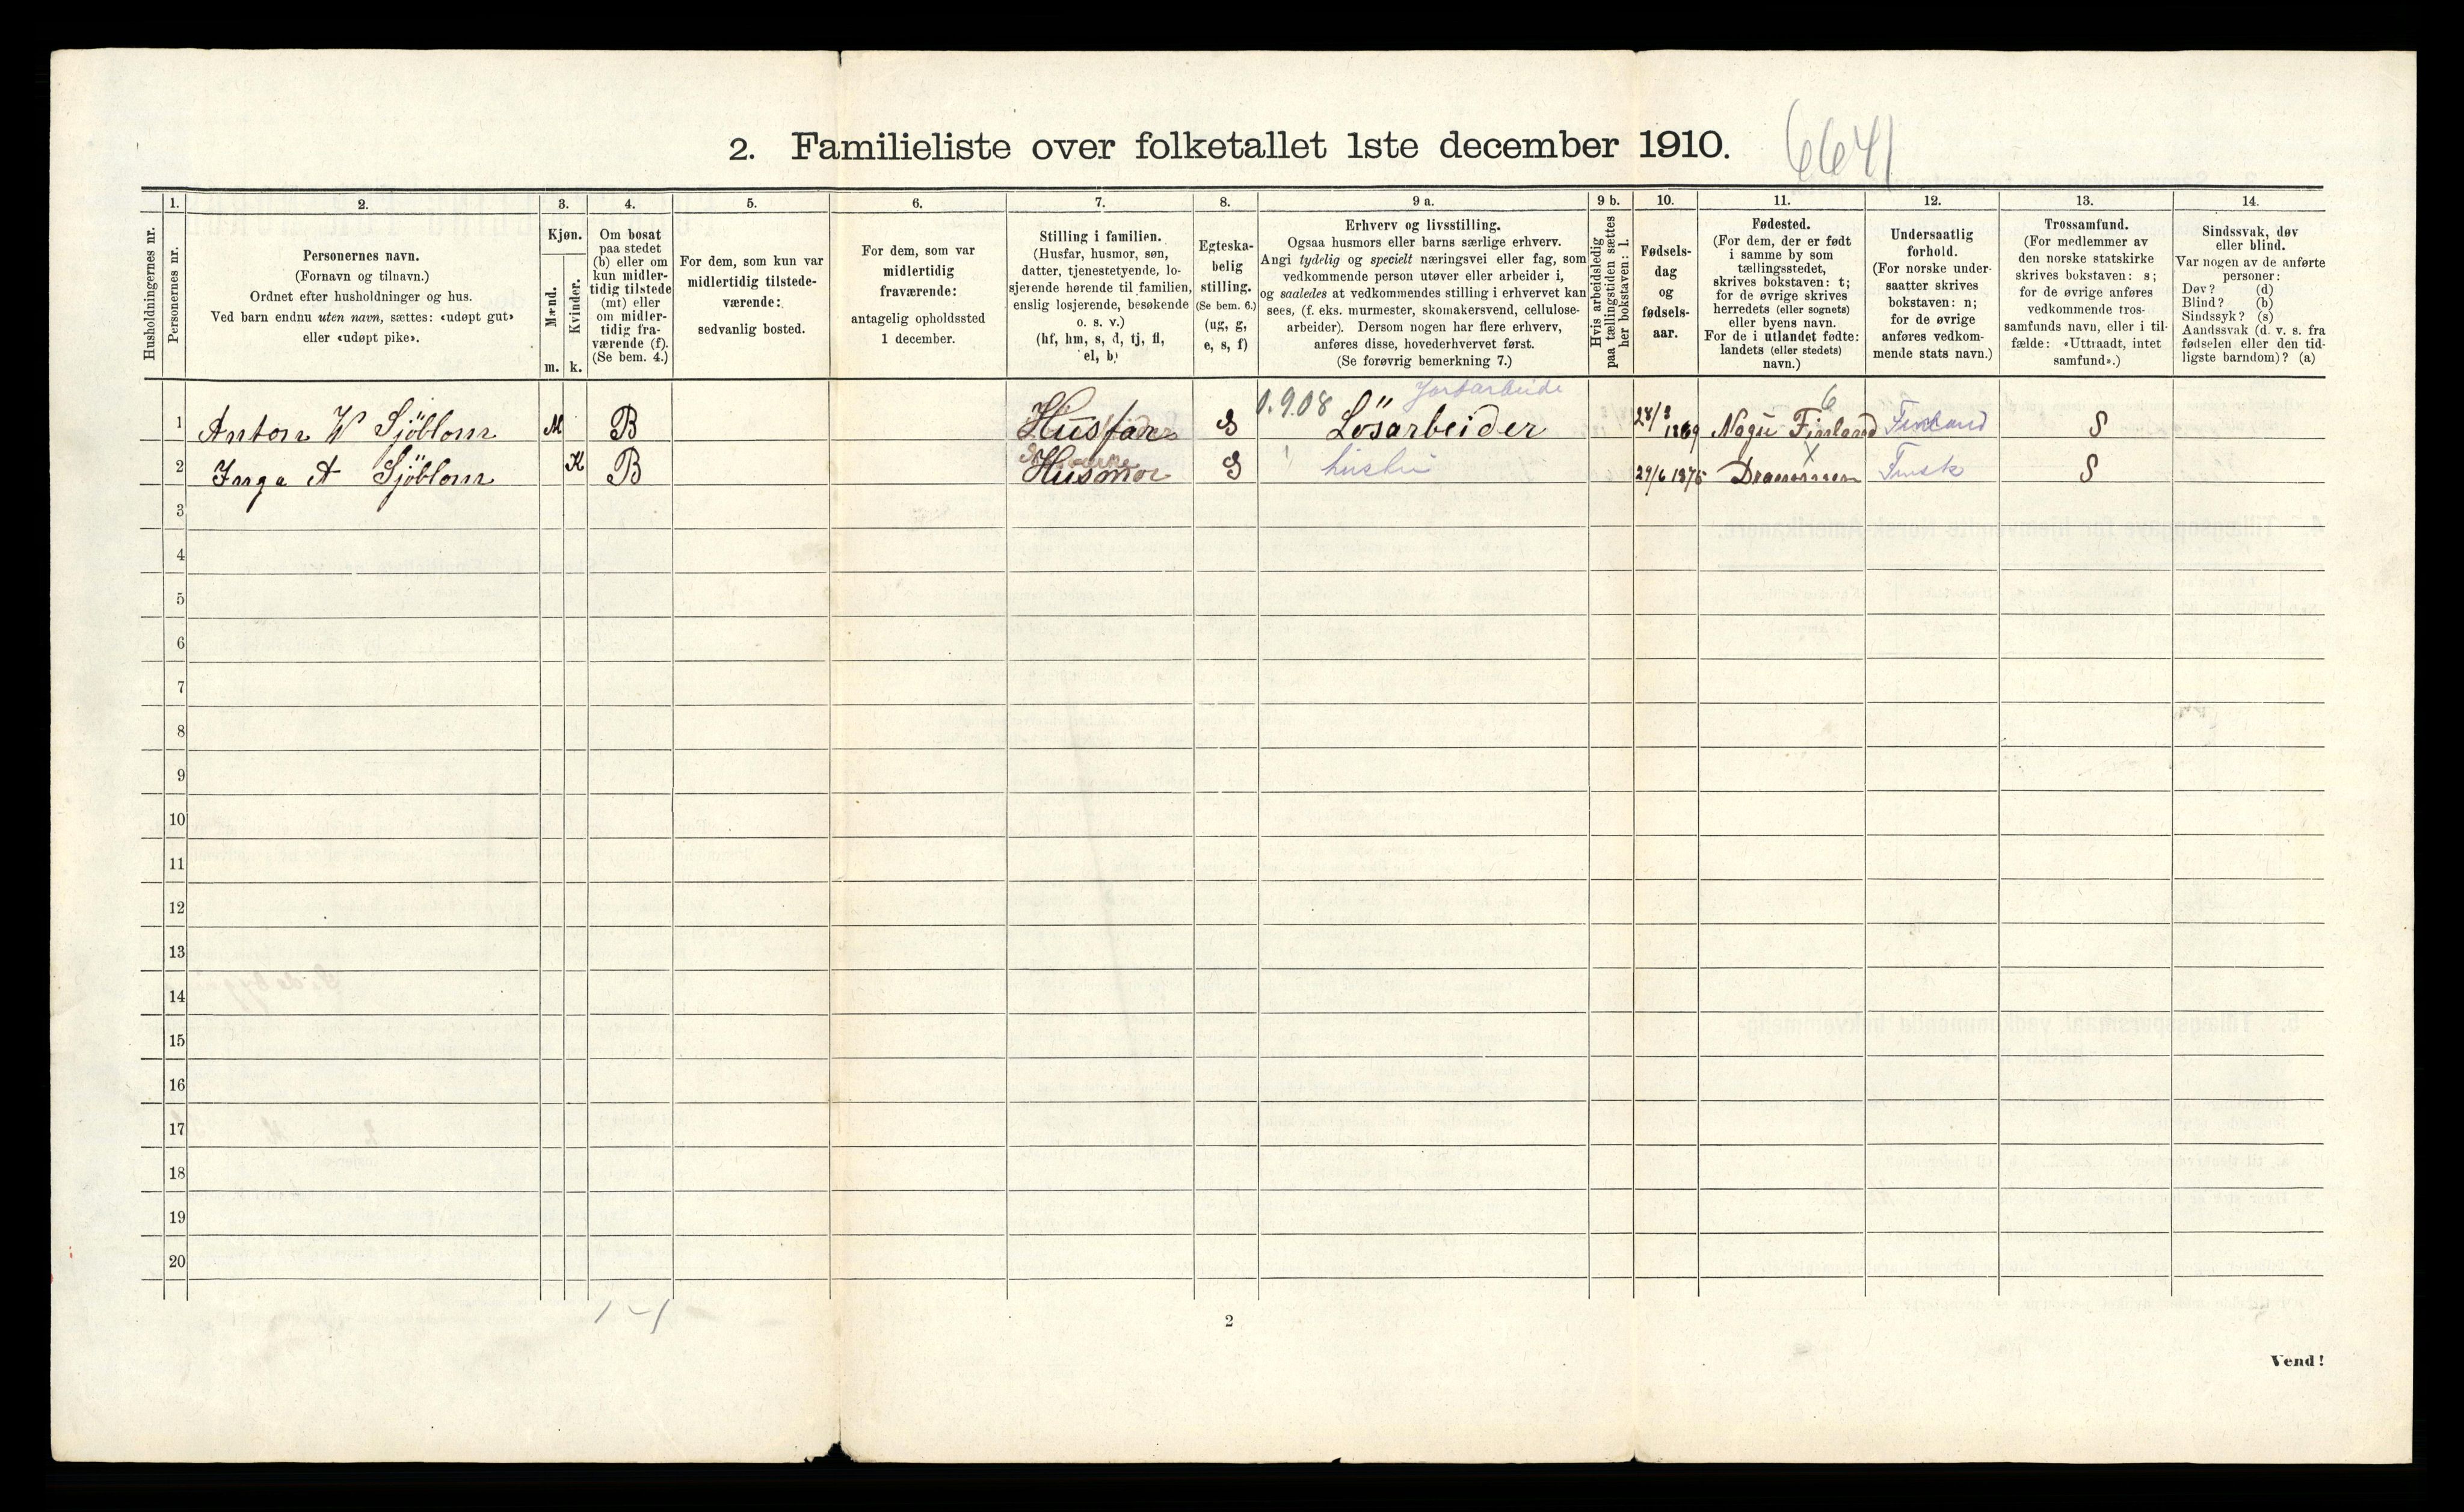 2. Familieliste over folketallet 1ste december 1910.
6641
Husholdningernes nr.
1.
Personernes nr.
2.
Personernes navn.
(Fornavn og tilnavn.)
Ordnet efter husholdninger og hus.
Ved barn endnu uten navn, sættes: «udøpt gut»
eller «udøpt pike».
3.
Kjøn.
Mænd.
Kvinder.
m. k.
4.
Om bosat
paa stedet
(b) eller om
kun midler-
tidig tilstede
(mt) eller
om midler-
tidig fra-
værende (f).
(Se bem. 4.)
5.
For dem, som kun var
midlertidig tilstede-
værende:
sedvanlig bosted.
6.
For dem, som var
midlertidig
fraværende:
antagelig opholdssted
1 december.
7.
Stilling i familien.
(Husfar, husmor, søn,
datter, tjenestetyende, lo-
sjerende hørende til familien,
enslig losjerende, besøkende
o. s. v.)
(hf, hm, s, d, tj, fl,
el, b)
8.
Egteska-
belig
stilling.
(Se bem. 6.)
(ug, g,
e, s, f)
9 a.
Erhverv og livsstilling.
Ogsaa husmors eller barns særlige erhverv.
Angi tydelig og specielt næringsvei eller fag, som
vedkommende person utøver eller arbeider i,
og saaledes at vedkommendes stilling i erhvervet kan
sees, (f. eks. murmester, skomakersvend, cellulose-
arbeider). Dersom nogen har flere erhverv,
anføres disse, hovederhvervet først.
(Se forøvrig bemerkning 7.)
9 b.
Hvis arbeidsledig
paa tællingstiden sættes
her bokstaven: l.
10.
Fødsels-
dag
og
fødsels-
aar.
11.
Fødested.
(For dem, der er født
i samme by som
tællingsstedet,
skrives bokstaven: t;
for de øvrige skrives
herredets (eller sognets)
eller byens navn.
For de i utlandet fødte:
landets (eller stedets)
navn.)
12.
Undersaatlig
forhold.
(For norske under-
saatter skrives
bokstaven: n;
for de øvrige
anføres vedkom-
mende stats navn.)
13.
Trossamfund.
(For medlemmer av
den norske statskirke
skrives bokstaven: s;
for de øvrige anføres
vedkommende tros-
samfunds navn, eller i til-
fælde: «Uttraadt, intet
samfund».)
14.
Sindssvak, døv
eller blind.
Var nogen av de anførte
personer:
Døv? (d)
Blind? (b)
Sindssyk? (s)
Aandssvak (d. v. s. fra
fødselen eller den tid-
ligste barndom)? (a)
0.9.08 Jordarbeide 6
1 Anton W Sjöblom M B Husfar S Lösarbeider 28/3 1869 Nagu Finland Finland S
2 Inga A Sjöblom K B Husmor S hustru 29/6 1875 Drammen Finsk S
3
4
5
6
7
8
9
10
11
12
13
14
15
16
17
18
19
20
1-1
2
Vend!